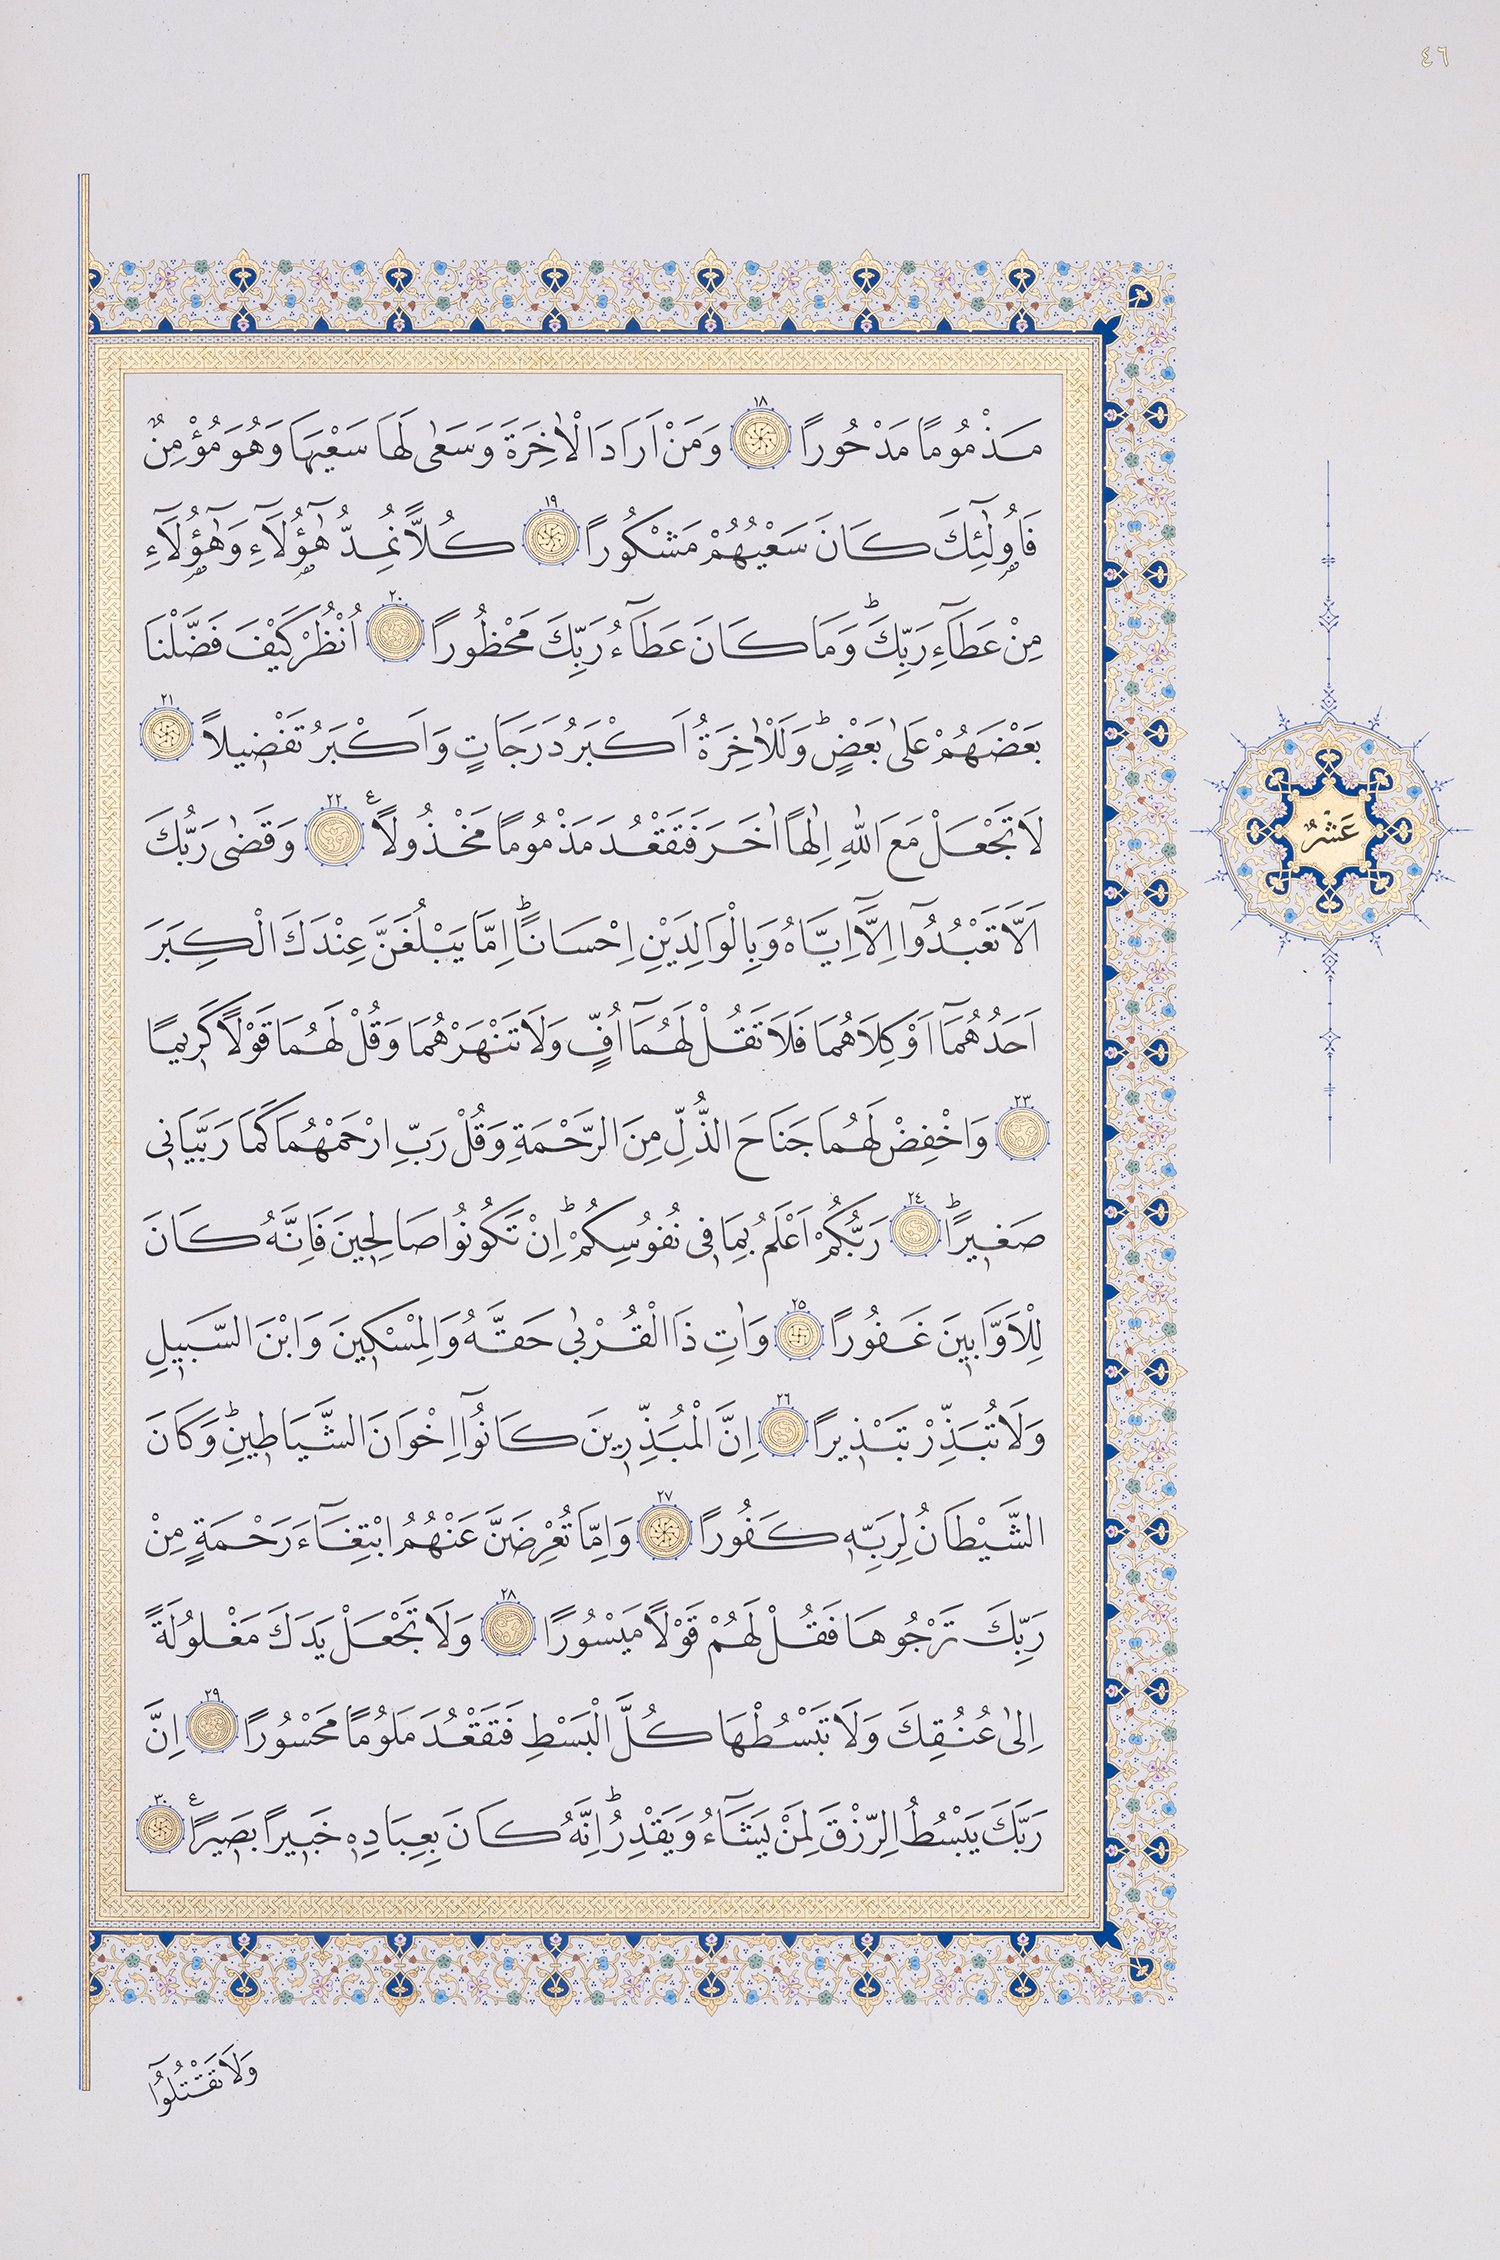 ٤٦
مَذْمُومًا مَدْحُورًا ١٨ وَمَنْ اَرَادَ الْاٰخِرَةَ وَسَعٰى لَهَا سَعْيَهَا وَهُوَ مُؤْمِنٌ
فَاُو۬لٰٓئِكَ كَانَ سَعْيُهُمْ مَشْكُورًا ١٩ كُلًّا نُمِدُّ هٰٓؤُ۬لَآءِ وَهٰٓؤُ۬لَآءِ
مِنْ عَطَآءِ رَبِّكَ ۜ وَمَا كَانَ عَطَآءُ رَبِّكَ مَحْظُورًا ٢٠ اُنْظُرْ كَيْفَ فَضَّلْنَا
بَعْضَهُمْ عَلٰى بَعْضٍ ۜ وَلَلْاٰخِرَةُ اَكْبَرُ دَرَجَاتٍ وَاَكْبَرُ تَفْضِيلًا ٢١
لَا تَجْعَلْ مَعَ اللّٰهِ اِلٰهًا اٰخَرَ فَتَقْعُدَ مَذْمُومًا مَخْذُولًا ع ٢٢ وَقَضٰى رَبُّكَ
اَلَّا تَعْبُدُٓوا اِلَّٓا اِيَّاهُ وَبِالْوَالِدَيْنِ اِحْسَانًا ۜ اِمَّا يَبْلُغَنَّ عِنْدَكَ الْكِبَرَ
اَحَدُهُمَٓا اَوْ كِلَاهُمَا فَلَا تَقُلْ لَهُمَٓا اُفٍّ وَلَا تَنْهَرْهُمَا وَقُلْ لَهُمَا قَوْلًا كَرِيمًا
٢٣ وَاخْفِضْ لَهُمَا جَنَاحَ الذُّلِّ مِنَ الرَّحْمَةِ وَقُلْ رَبِّ ارْحَمْهُمَا كَمَا رَبَّيَانِي
صَغِيرًا ۜ ٢٤ رَبُّكُمْ اَعْلَمُ بِمَا فِي نُفُوسِكُمْ ۜ اِنْ تَكُونُوا صَالِحِينَ فَاِنَّهُ كَانَ
لِلْاَوَّابِينَ غَفُورًا ٢٥ وَاٰتِ ذَا الْقُرْبٰى حَقَّهُ وَالْمِسْكِينَ وَابْنَ السَّبِيلِ
وَلَا تُبَذِّرْ تَبْذِيرًا ٢٦ اِنَّ الْمُبَذِّرِينَ كَانُٓوا اِخْوَانَ الشَّيَاطِينِ ۜ وَكَانَ
الشَّيْطَانُ لِرَبِّهِ كَفُورًا ٢٧ وَاِمَّا تُعْرِضَنَّ عَنْهُمُ ابْتِغَآءَ رَحْمَةٍ مِنْ
رَبِّكَ تَرْجُوهَا فَقُلْ لَهُمْ قَوْلًا مَيْسُورًا ٢٨ وَلَا تَجْعَلْ يَدَكَ مَغْلُولَةً
اِلٰى عُنُقِكَ وَلَا تَبْسُطْهَا كُلَّ الْبَسْطِ فَتَقْعُدَ مَلُومًا مَحْسُورًا ٢٩ اِنَّ
رَبَّكَ يَبْسُطُ الرِّزْقَ لِمَنْ يَشَآءُ وَيَقْدِرُ ۜ اِنَّهُ كَانَ بِعِبَادِهِ خَبِيرًا بَصِيرًا ع ٣٠
عَشْرٌ
وَلَا تَقْتُلُٓوا